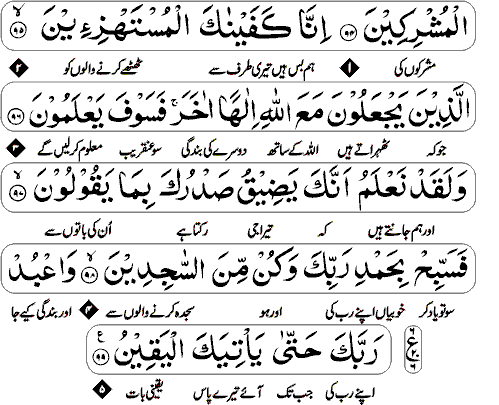 الْمُشْرِكِيْنَ ﴿۹۴﴾ اِنَّا كَفَيْنٰكَ الْمُسْتَهْزِءِيْنَ ﴿۹۵﴾ۙ
مشرکوں کی ۱ ہم بس ہیں تیری طرف سے ٹھٹھے کرنے والوں کو ۲
الَّذِيْنَ يَجْعَلُوْنَ مَعَ اللّٰهِ اِلٰهًا اٰخَرَ ۚ فَسَوْفَ يَعْلَمُوْنَ ﴿۹۶﴾
جو کہ ٹھہراتے ہیں اللہ کے ساتھ دوسرے کی بندگی سو عنقریب معلوم کرلیں گے ۳
وَلَقَدْ نَعْلَمُ اَنَّكَ يَضِيْقُ صَدْرُكَ بِمَا يَقُوْلُوْنَ ﴿۹۷﴾ۙ
اور ہم جانتے ہیں کہ تیرا جی رکتا ہے اُن کی باتوں سے
فَسَبِّحْ بِحَمْدِ رَبِّكَ وَكُنْ مِّنَ السّٰجِدِيْنَ ﴿۹۸﴾ۙ وَاعْبُدْ
سو تو یاد کر خوبیاں اپنے رب کی اور ہو سجدہ کرنے والوں سے ۴ اور بندگی کیے جا
رَبَّكَ حَتّٰى يَاْتِيَكَ الْيَقِيْنُ ﴿۹۹﴾ ع
۶ ع ۲۰ ۶
اپنے رب کی جب تک آئے تیرے پاس یقینی بات ۵